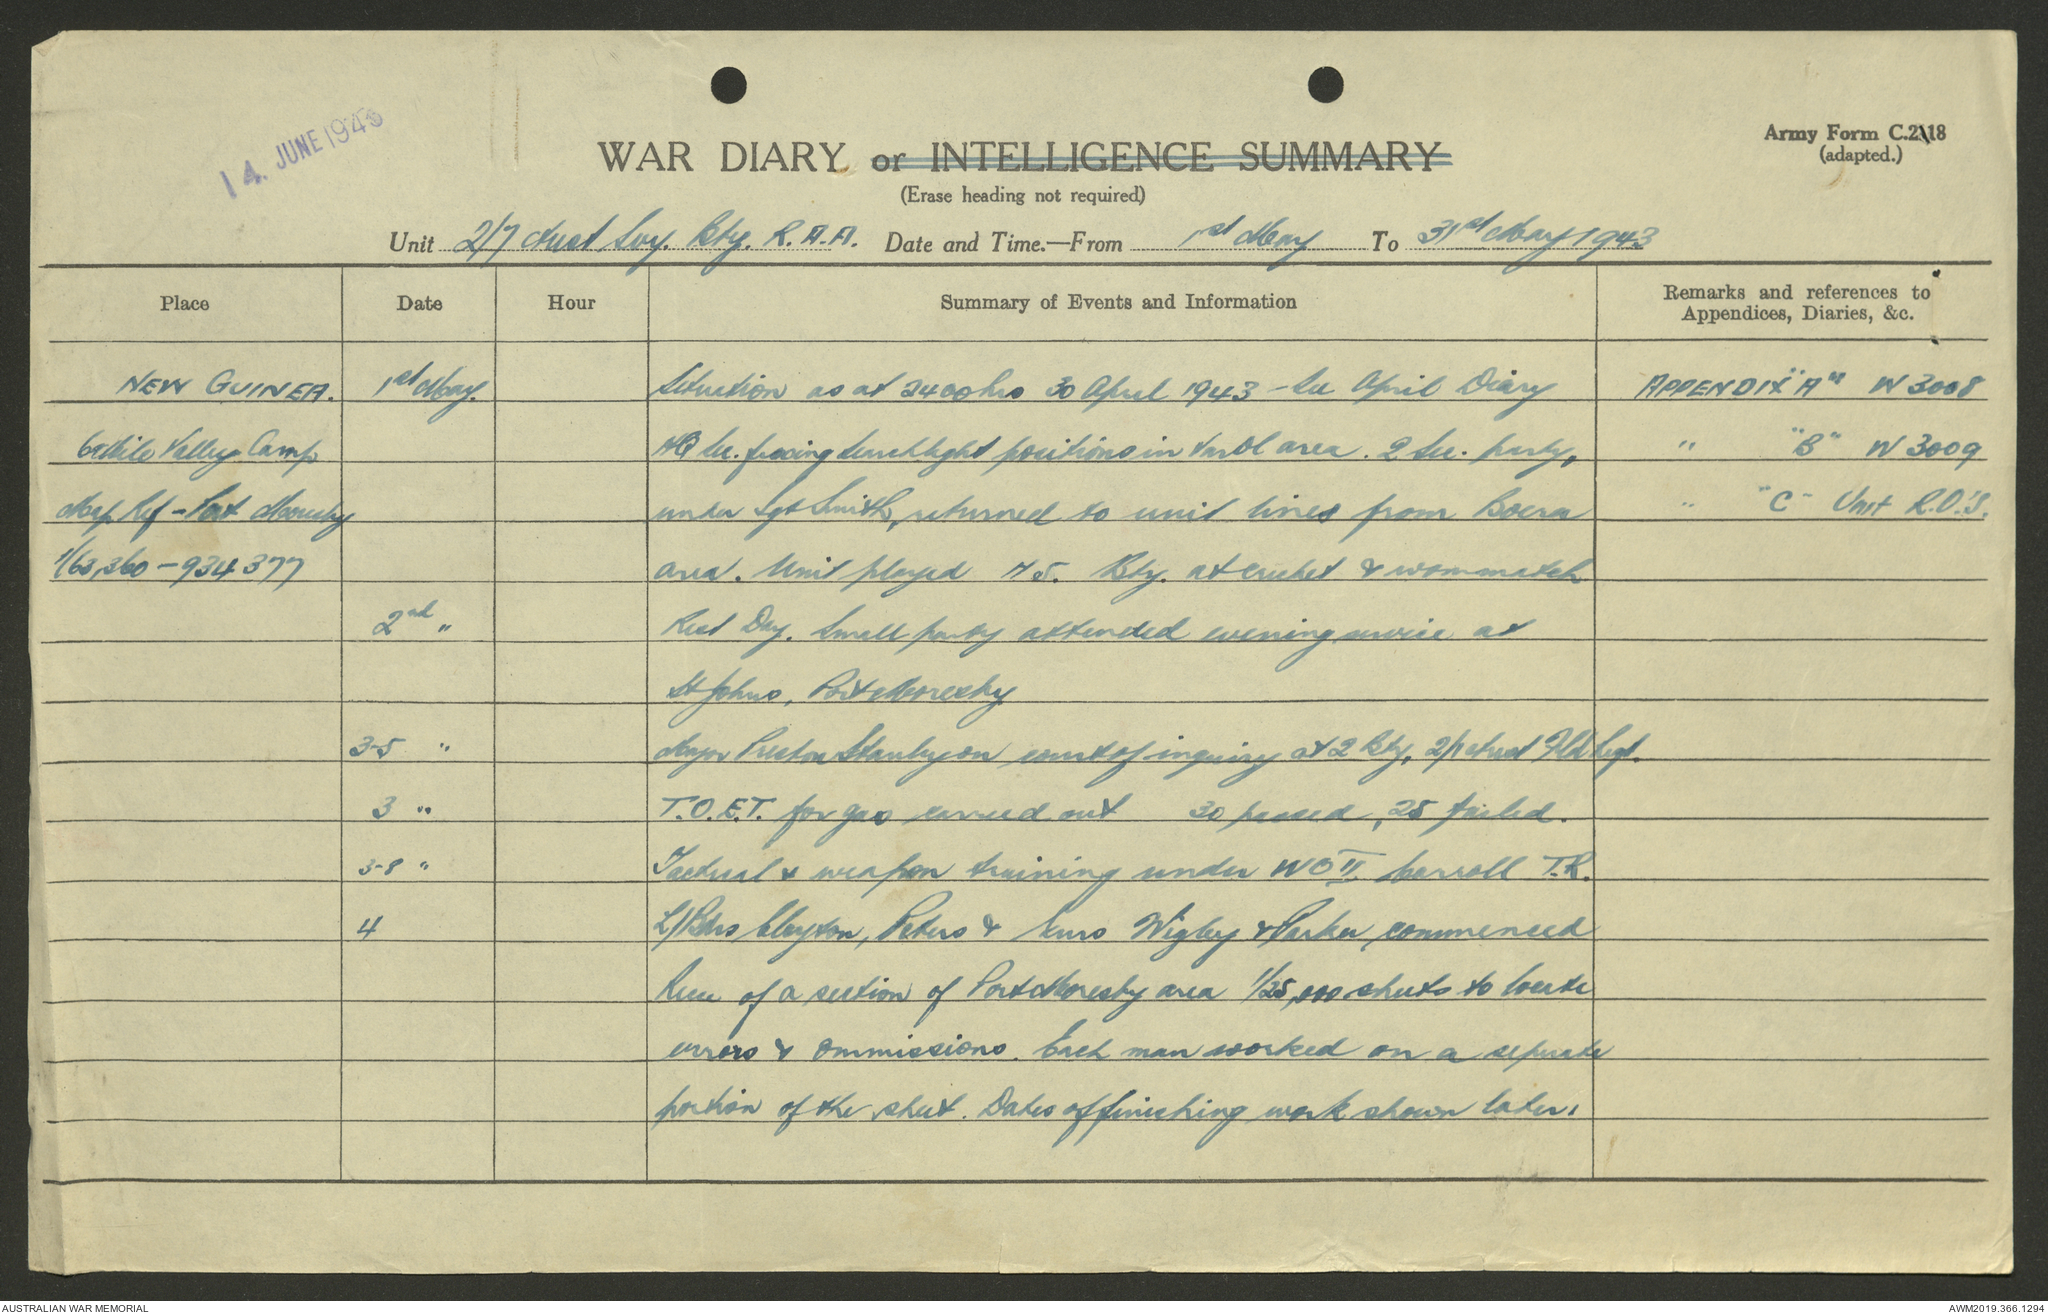 14. JUNE 1943
Army Form C.2118
(adapted.)
WAR DIARY or INTELLIGENCE SUMMARY
(Erase heading not required)
Unit 2/7 Aust Svy. Bty. R.A.A. Date and Time.—From 1st May To 31st May 1943
Place Date Hour Summary of Events and Information Remarks and references to
Appendices, Diaries, &c.
NEW GUINEA. 1st May. Situation as at 2400hrs 30 April 1943 - See April Diary APPENDIX "A" W 3008
6 Mile Valley Camp HQ Sec. fixing searchlight positions in area. 2 Sec. party, " "B" W 3009
Map Ref - Port Moresby under Sgt Smith, returned to unit lines from Boera " "C" Unit R.O.'S.
1/63,360 - 934377 area. Unit played A S. Bty. at cricket & won match
2nd " Rest Day. Small party attended evening service at
St Johns, Port Moresby
3-5 " Major Preston Stanley on court of inquiry at 2 Bty, 2/1 Aust Fld Regt.
3 " T.O.E.T. for gas carried out 30 passed, 25 failed.
3-8 " Tactical & weapon training under WO II Carroll T.R.
4 L/Bdrs Clayton, Peters & Gnrs Wigley & Parker commenced
Recce of a section of Port Moresby area 1/25,000 sheets to locate
errors & ommissions. Each man worked on a seperate
portion of the sheet. Dates of finishing work shown later.
AUSTRALIAN WAR MEMORIAL
AWM2019.366.1294